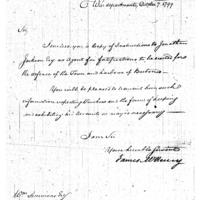 War department, October 7. 1799
Sir,
I enclose you a Copy of Instructions to Jonathan
Jackson Esq. as agent for fortifications to be erected for
the defence of the Town and harbour of
You will be pleased to transmit him such
information respecting and the forms of keeping
and exhibiting his accounts as may be necessary
I am Sir
Your humble Servant
James McHenry
Wm. Simmons Esq.